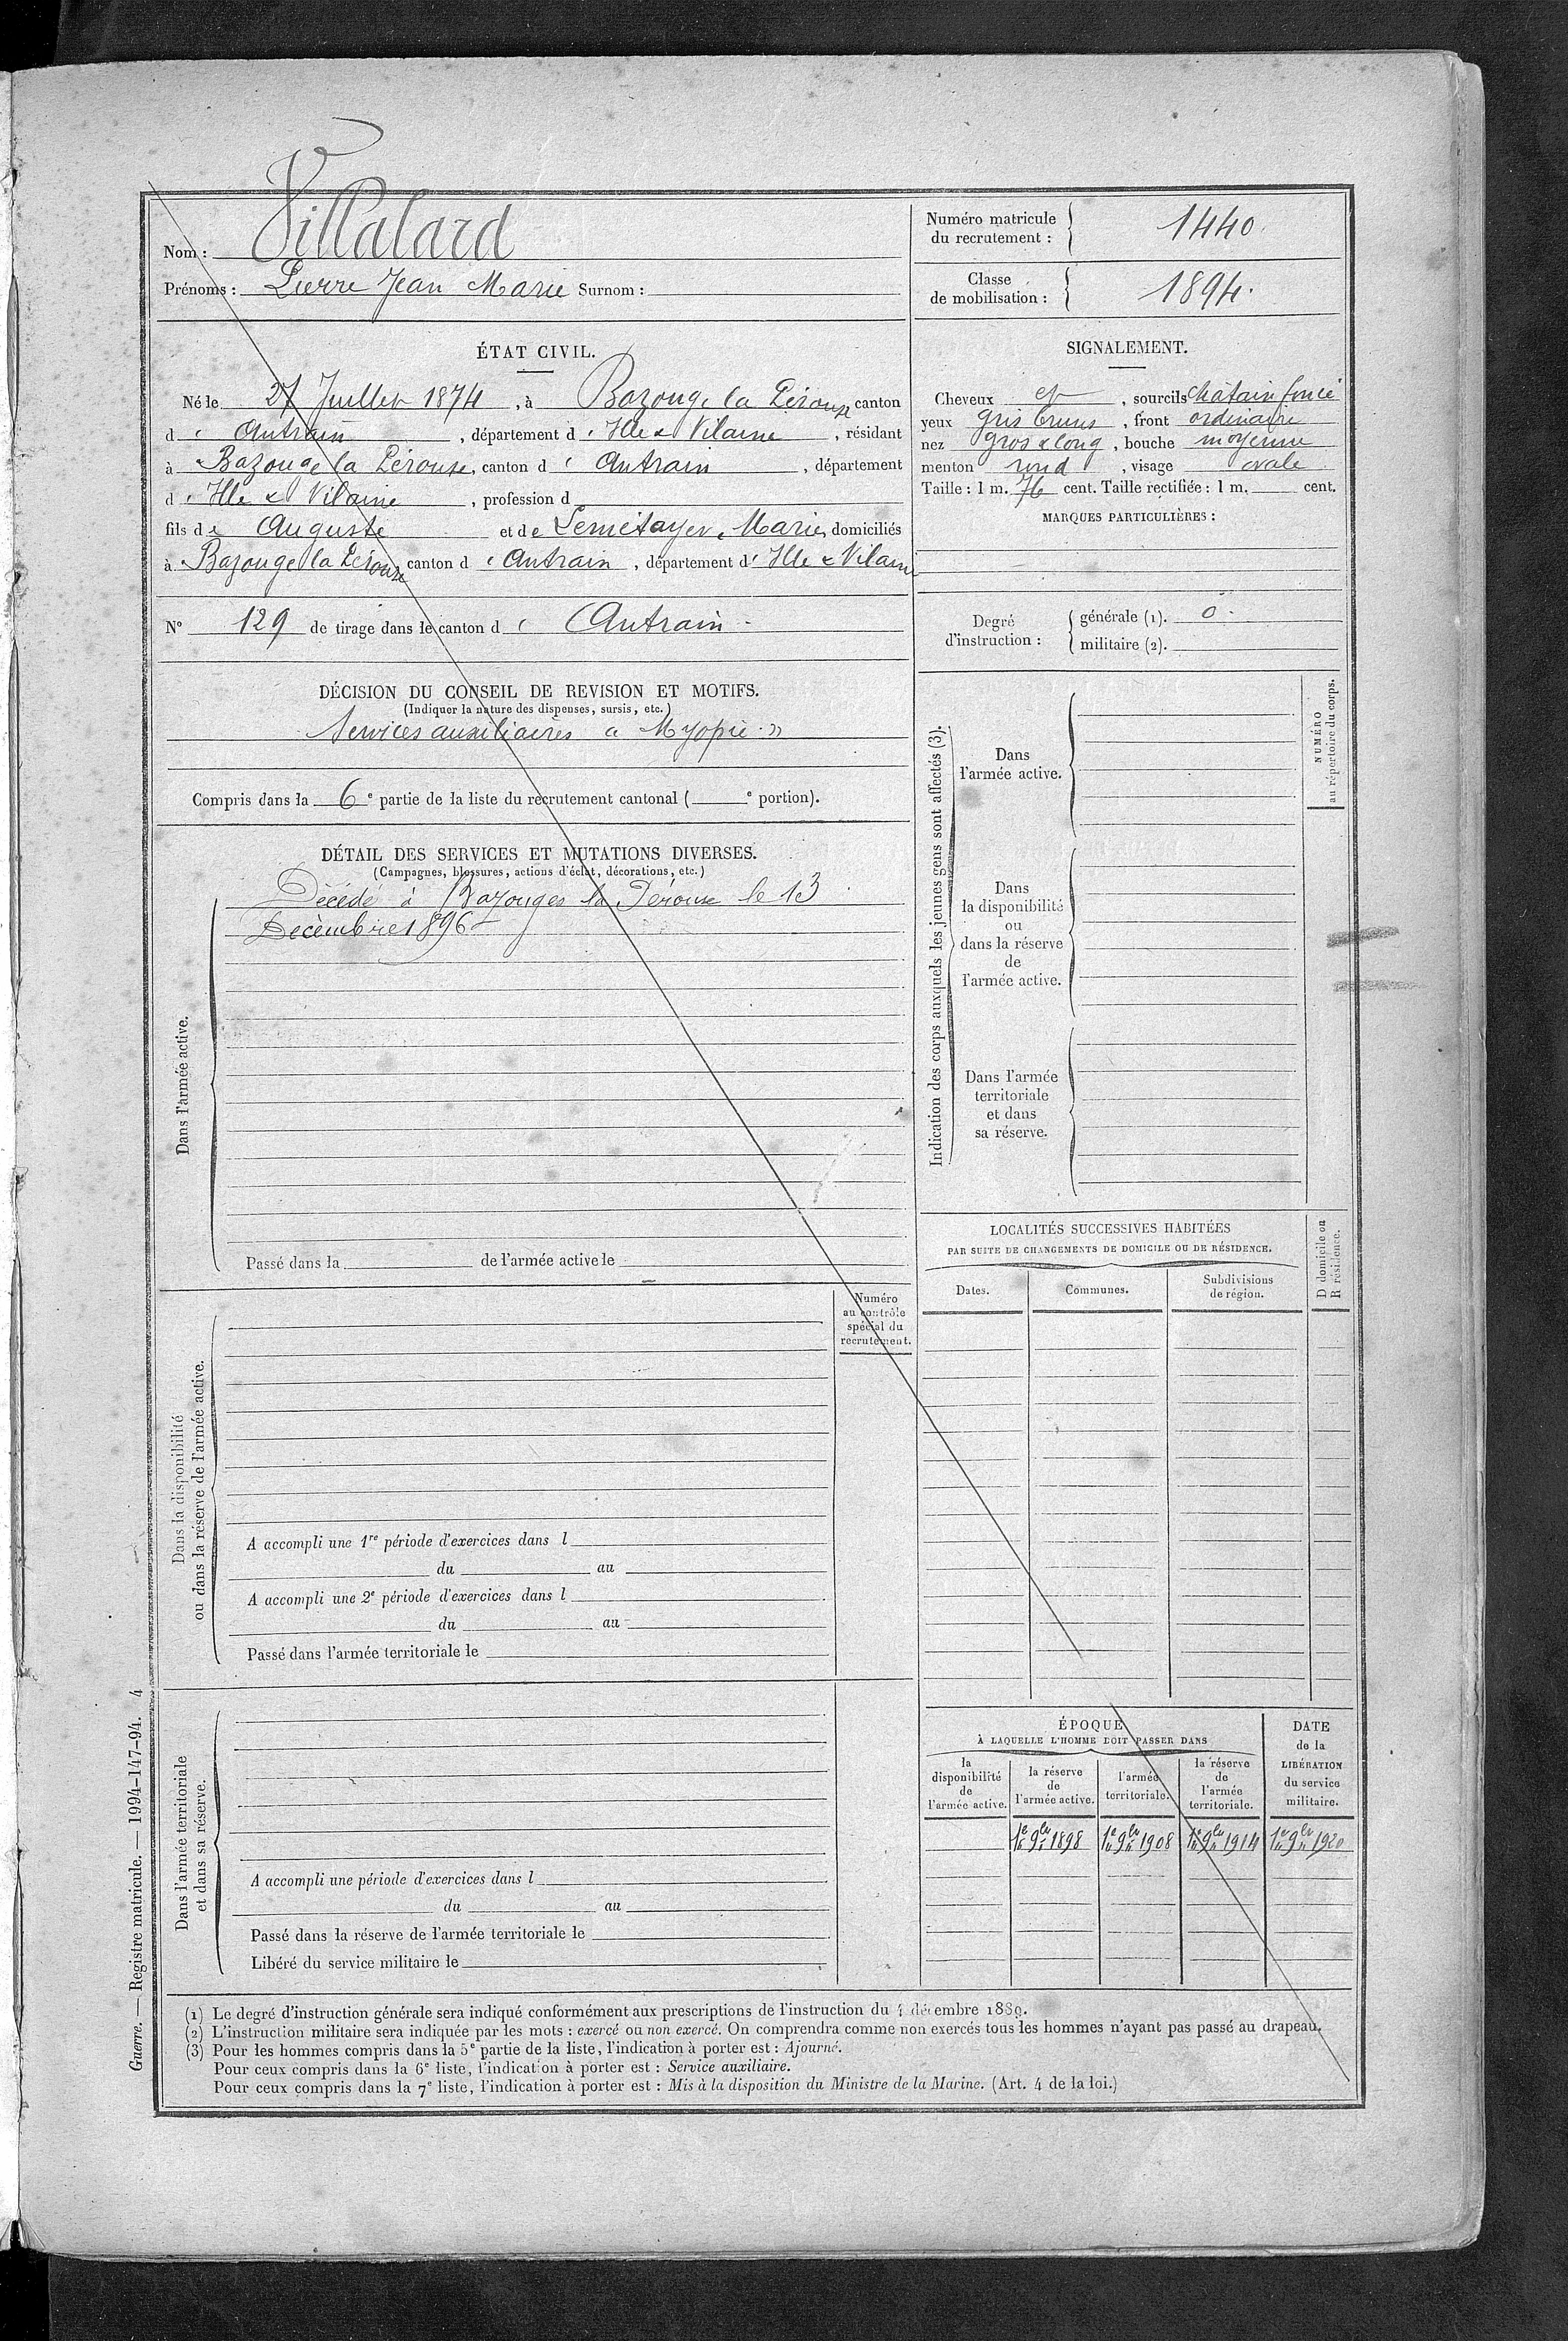 Nom : Villalard
Prénoms : Pierre Jean Marie Surnom :
Numéro matricule du recrutement : 1440.
Classe de mobilisation : 1894.
ÉTAT CIVIL.
Né le 27 Juillet 1874, à Bazouge la Pérouse canton
d'Antrain, département d'Ille & Vilaine, résidant
à Bazouge la Pérouse, canton d'Antrain, département
d'Ille & Vilaine, profession d
fils de Auguste et de Lemétayer, Marie, domiciliés
à Bazouge la Pérouse canton d'Antrain, département d'Ille & Vilaine
N° 129 de tirage dans le canton d'Antrain -
SIGNALEMENT.
Cheveux et, sourcils châtain foncé
yeux gris bruns, front ordinaire
nez gros & long, bouche moyenne
menton rond, visage ovale
Taille : 1 m. 76 cent. Taille rectifiée : 1 m. cent.
MARQUES PARTICULIÈRES :
Degré d'instruction :
générale (1). 0.
militaire (2).
DÉCISION DU CONSEIL DE REVISION ET MOTIFS.
(Indiquer la nature des dispenses, sursis, etc.)
Services auxiliaires « Myopie »
Compris dans la 6e partie de la liste du recrutement cantonal ( e portion).
DÉTAIL DES SERVICES ET MUTATIONS DIVERSES.
(Campagnes, blessures, actions d'éclat, décorations, etc.)
Dans l'armée active.
Décédé à Bazouges la Pérouse le 13
Décembre 1896
Passé dans la de l'armée active le
Numéro
au contrôle
spécial du
recrutement.
Dans la disponibilité
ou dans la réserve de l'armée active.
A accompli une 1re période d'exercices dans l
du au
A accompli une 2e période d'exercices dans l
du au
Passé dans l'armée territoriale le
Dans l'armée territoriale
et dans sa réserve.
A accompli une période d'exercices dans l
du au
Passé dans la réserve de l'armée territoriale le
Libéré du service militaire le
Indication des corps auxquels les jeunes gens sont affectés (3).
Dans
l'armée active.
Dans
la disponibilité
ou
dans la réserve
de
l'armée active.
Dans l'armée
territoriale
et dans
sa réserve.
NUMÉRO
au répertoire du corps.
LOCALITÉS SUCCESSIVES HABITÉES
PAR SUITE DE CHANGEMENTS DE DOMICILE OU DE RÉSIDENCE.
Dates. Communes. Subdivisions de région.
D domicile ou
R résidence.
ÉPOQUE
À LAQUELLE L'HOMME DOIT PASSER DANS
la disponibilité de l'armée active.
la réserve de l'armée active.
l'armée territoriale.
la réserve de l'armée territoriale.
DATE de la LIBÉRATION du service militaire.
1er 9bre 1898 1er 9bre 1908 1er 9bre 1914 1er 9bre 1920
(1) Le degré d'instruction générale sera indiqué conformément aux prescriptions de l'instruction du 4 décembre 1889.
(2) L'instruction militaire sera indiquée par les mots : exercé ou non exercé. On comprendra comme non exercés tous les hommes n'ayant pas passé au drapeau.
(3) Pour les hommes compris dans la 5e partie de la liste, l'indication à porter est : Ajourné.
Pour ceux compris dans la 6e liste, l'indication à porter est : Service auxiliaire.
Pour ceux compris dans la 7e liste, l'indication à porter est : Mis à la disposition du Ministre de la Marine. (Art. 4 de la loi.)
Guerre. — Registre matricule. — 1994-147-94. 4